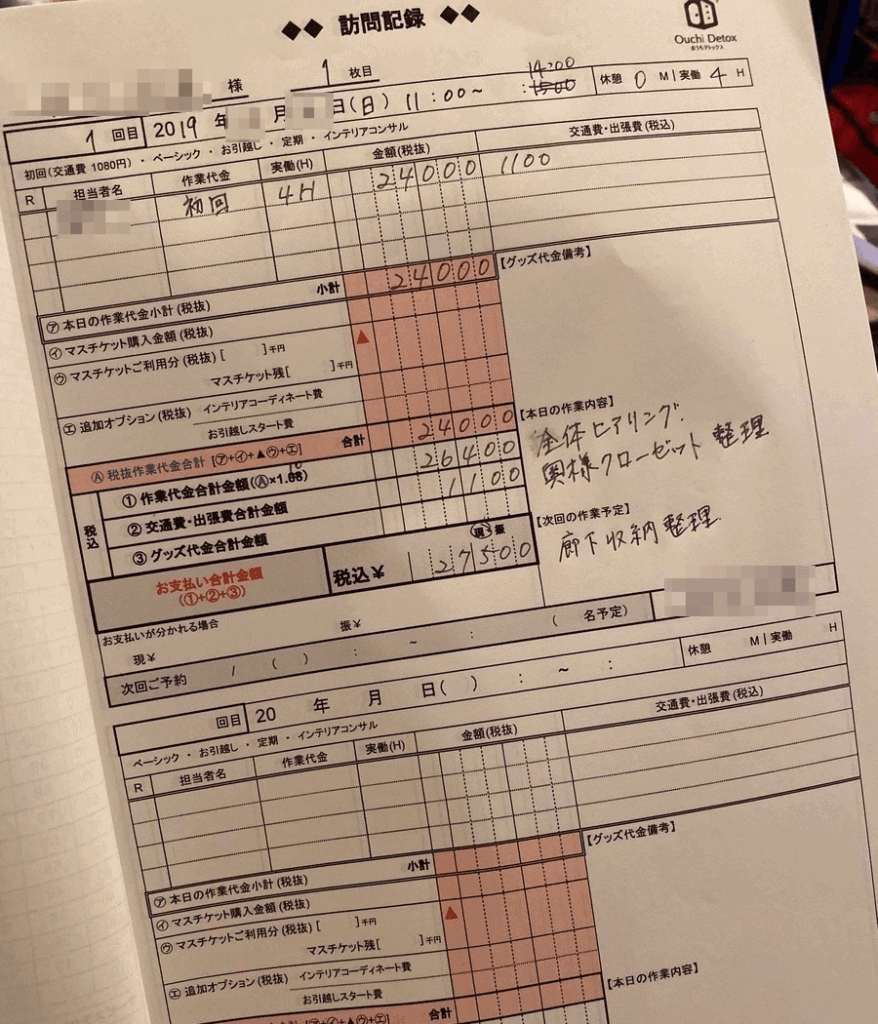 ◆◆ 訪問記録 ◆◆
Ouchi Detox
おうちデトックス
様 1 枚目
1 回目 2019 年 月 日(日) 11:00〜 14:00 :15:00 休憩 0 M | 実働 4 H
初回(交通費 1080円)・ベーシック・お引越し・定期・インテリアコンサル
R 担当者名 作業代金 実働(H) 金額(税抜) 交通費・出張費(税込)
初回 4H 24000 1100
小計 24000 【グッズ代金備考】
㋐ 本日の作業代金小計(税抜)
㋑ マスチケット購入金額(税抜)
㋒ マスチケットご利用分(税抜)[ ]千円 ▲
マスチケット残[ ]千円
㋓ 追加オプション(税抜) インテリアコーディネート費
お引越しスタート費
Ⓐ 税抜作業代金合計 [㋐+㋑+▲㋒+㋓] 合計 24000
【本日の作業内容】
全体ヒアリング.
奥様クローゼット整理
税込
① 作業代金合計金額(Ⓐ×1.08) 10 26400
② 交通費・出張費合計金額 1100
③ グッズ代金合計金額
【次回の作業予定】
廊下収納整理
お支払い合計金額
(①+②+③)
税込¥ 27500 現・振
お支払いが分かれる場合
現¥ 振¥
次回ご予約 / ( ) : 〜 : ( 名予定)
回目 20 年 月 日( ) : 〜 : 休憩 M | 実働 H
ベーシック・お引越し・定期・インテリアコンサル
R 担当者名 作業代金 実働(H) 金額(税抜) 交通費・出張費(税込)
小計 【グッズ代金備考】
㋐ 本日の作業代金小計(税抜)
㋑ マスチケット購入金額(税抜)
㋒ マスチケットご利用分(税抜)[ ]千円 ▲
マスチケット残[ ]千円
㋓ 追加オプション(税抜) インテリアコーディネート費
お引越しスタート費
【本日の作業内容】
合計